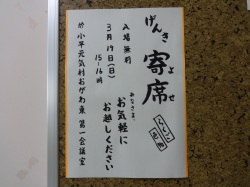 げんき
寄席
よせ
入場無料
3月19日(日)
15-16時
みなさま、
お気軽に
お越しください
於 小平元気村おがわ東 第一会議室